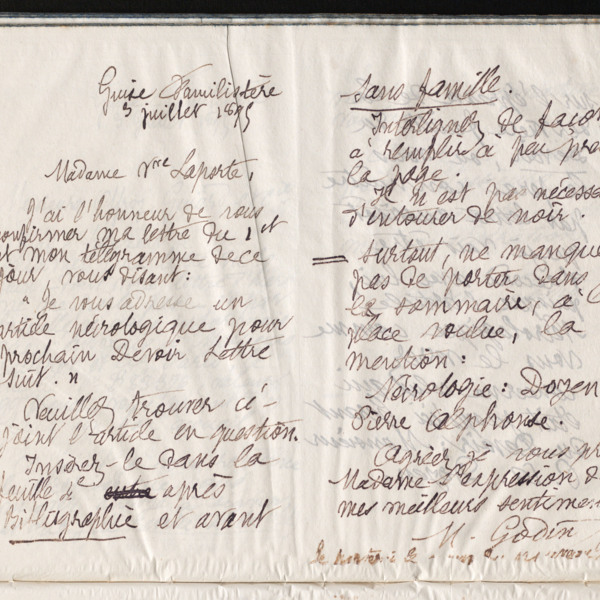 Guise Familistère
3 juillet 1895
Madame Vve Laporte,
J'ai l'honneur de vous
confirmer ma lettre du 1er ct
et mon télégramme de ce
jour vous disant:
" Je vous adresse un
article nécrologique pour
prochain Devoir lettre
suit. "
Veuillez trouver ci-
joint l'article en question.
Insérez-le dans la
feuille après
Bibliographie et avant
Sans famille.
Interlignez de façon
à remplir à peu pr
la page.
Il n'est pas nécessa
d'entourer de noir.
Surtout, ne manque
pas de porter dans
le sommaire, à
place voulue, la
mention:
Nécrologie: Doyen
Pierre Alphonse.
Agréez je vous pr
Madame l'expression d
mes meilleurs sentime
M. Godin